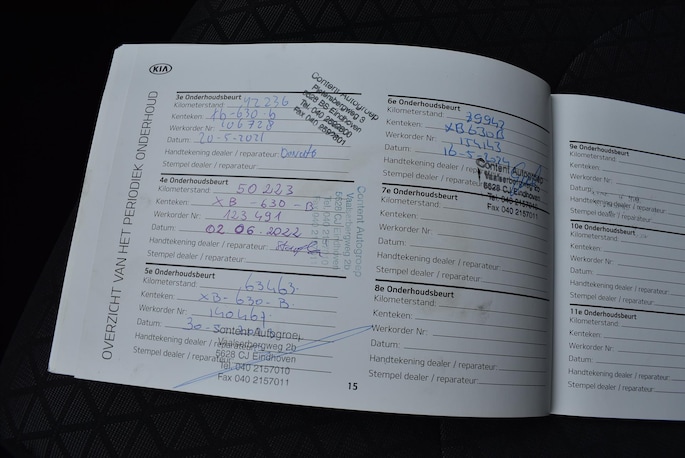 KIA
OVERZICHT VAN HET PERIODIEK ONDERHOUD
3e Onderhoudsbeurt
Kilometerstand: 42236
Kenteken:
Werkorder Nr: 106728
Datum: 20-5-2021
Handtekening dealer / reparateur:
Stempel dealer / reparateur:
Content Autogroep
5628 BS Eindhoven
Tel. 040
Fax 040
4e Onderhoudsbeurt
Kilometerstand: 50223
Kenteken: XB-630-B
Werkorder Nr: 123491
Datum: 02 06 2022
Handtekening dealer / reparateur:
Stempel dealer / reparateur:
Content Autogroep
Vaalserbergweg 2b
5628 CJ Eindhoven
5e Onderhoudsbeurt
Kilometerstand: 63463
Kenteken: XB-630-B
Werkorder Nr: 140467
Datum: 30
Handtekening dealer / reparateur:
Stempel dealer / reparateur:
Content Autogroep
Vaalserbergweg 2b
5628 CJ Eindhoven
Tel. 040 2157010
Fax 040 2157011
15
6e Onderhoudsbeurt
Kilometerstand: 79942
Kenteken: XB630B
Werkorder Nr:
Datum: 16-5-2024
Handtekening dealer / reparateur:
Stempel dealer / reparateur:
Content Autogroep
Vaalserbergweg 2b
5628 CJ Eindhoven
Tel. 040 2157010
Fax 040 2157011
7e Onderhoudsbeurt
Kilometerstand:
Kenteken:
Werkorder Nr:
Datum:
Handtekening dealer / reparateur:
Stempel dealer / reparateur:
8e Onderhoudsbeurt
Kilometerstand:
Kenteken:
Werkorder Nr:
Datum:
Handtekening dealer / reparateur:
Stempel dealer / reparateur:
9e Onderhoudsbeurt
Kilometerstand:
Kenteken:
Werkorder Nr:
Datum:
Handtekening dealer / reparateur:
Stempel dealer / reparateur:
10e Onderhoudsbeurt
Kilometerstand:
Kenteken:
Werkorder Nr:
Datum:
Handtekening dealer / reparateur:
Stempel dealer / reparateur:
11e Onderhoudsbeurt
Kilometerstand:
Kenteken:
Werkorder Nr:
Datum:
Handtekening dealer / reparateur:
Stempel dealer / reparateur: